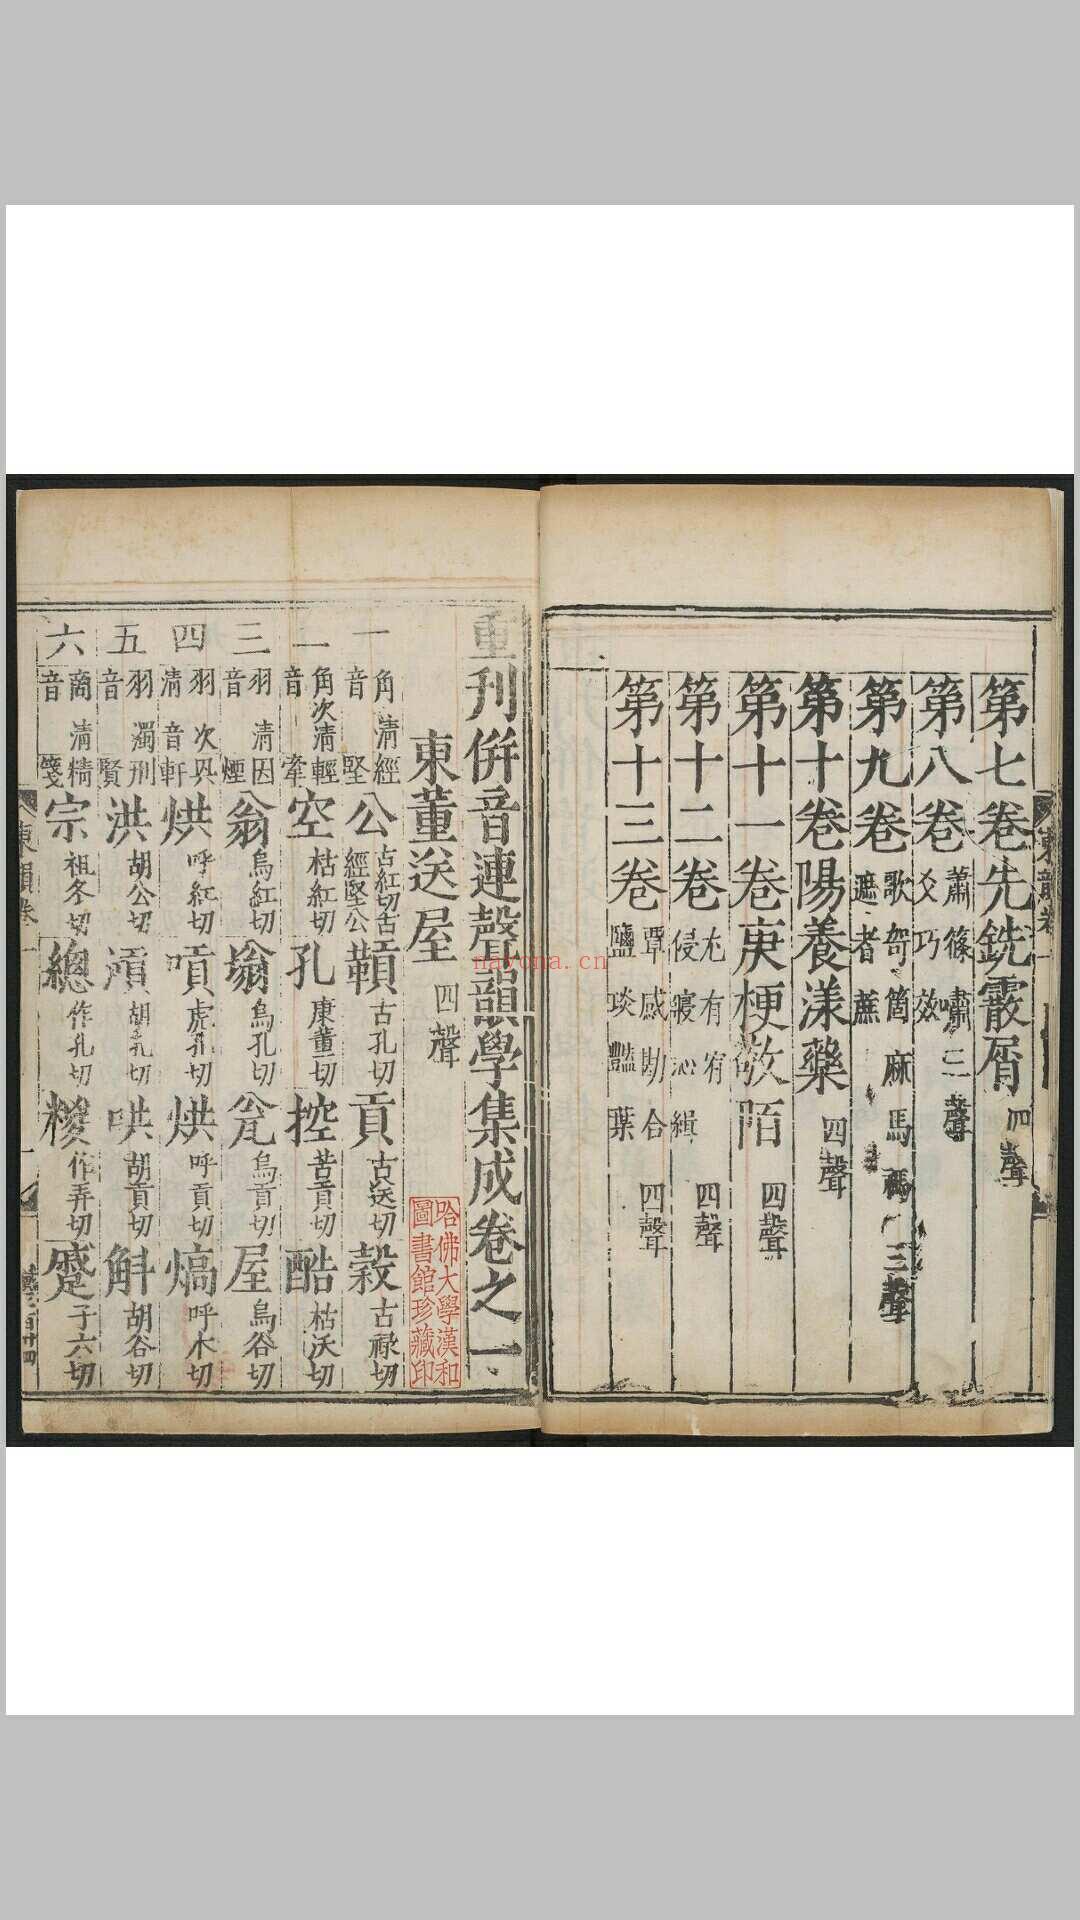 第七卷先銑霰屑四聲
第八卷蕭篠嘯三聲
爻巧效
第九卷歌哿箇麻馬禡三聲
遮者蔗
第十卷陽養漾藥四聲
第十一卷庚梗敬陌四聲
第十二卷尤有宥
侵寢沁緝四聲
第十三卷覃感勘合四聲
鹽琰豔葉
重刊併音連聲韻學集成卷之一
東董送屋四聲
一角清經
音堅公古紅切古
經堅公䩼古孔切貢古送切榖古祿切
二角次清輕
音牽空枯紅切孔康董切控苦貢切酷枯沃切
三羽清因
音煙翁烏紅切塕烏孔切瓮烏貢切屋烏谷切
四羽次
清音軒烘呼紅切嗊虎孔切烘呼貢切熇呼木切
五羽濁刑
音賢洪胡公切澒胡孔切哄胡貢切斛胡谷切
六商清精
音箋宗祖冬切總作孔切糉作弄切蹙子六切
哈佛大學漢和
圖書館珍藏印
nayona.cn